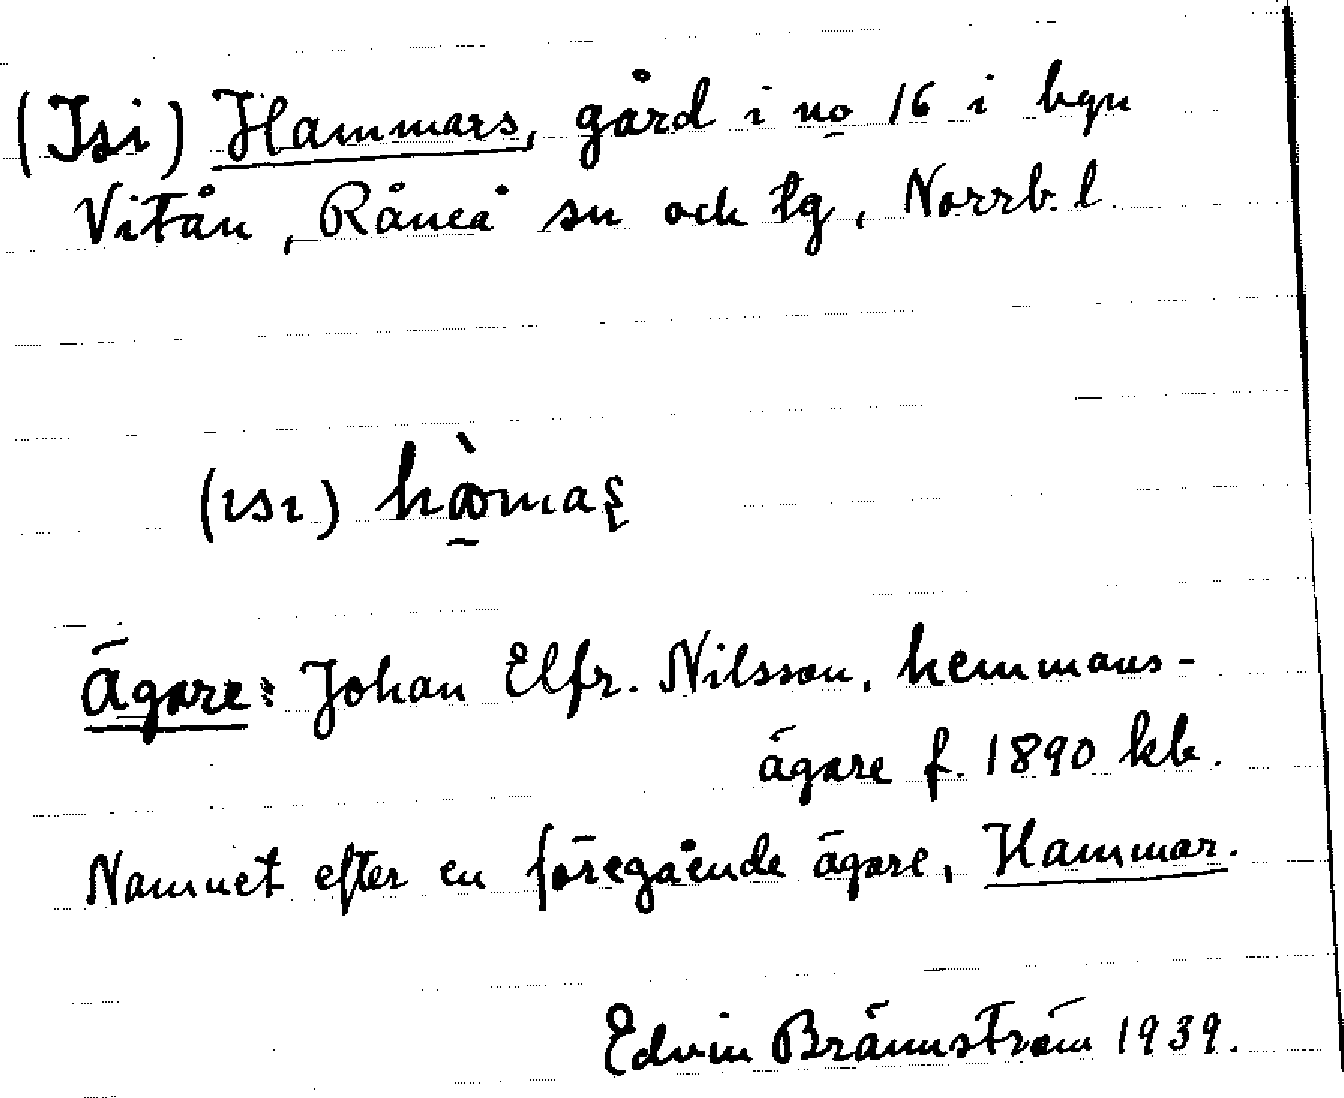 (Isi) Hammars, gård i no 16 i byn
Vitån, Råneå sn och tg, Norrb. l.
(ısı) hòmaş
Ägare: Johan Elfr. Nilsson, hemmans-
ägare f. 1890 kb.
Namnet efter en föregående ägare, Hammar.
Edvin Brännström 1939.